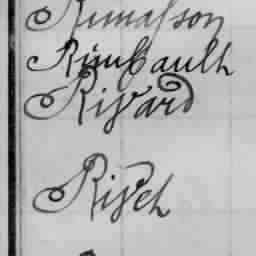 Rimasson
Rimbault
Rivard
Rivet